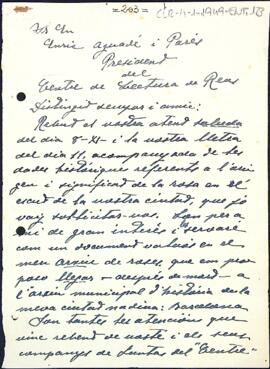 = 203 =
Sr. En
Enric Aguadé i Parés
President
del
Centre de Lectura de Reus
Distingit senyor i amic:
Rebuda el vostre atent saluda
del dia 8-XI- i la vostra lletra
del dia 11, acompanyada de les
dades històriques referents a l'ori-
gen i significat de la rosa en el
escut de la vostra ciutat, que jo
vaig sol·licitar-vos. Son per a
mi de gran interès i servaré
com un document valuós en el
meu arxiu de roses, que em pro-
poso llegar - després de mort - a
l'arxiu municipal d'història de la
meva ciutat nadiua: Barcelona
Son tantes les atencions que
vinc rebent de vostè i els seus
companys de Junta del "Centre"